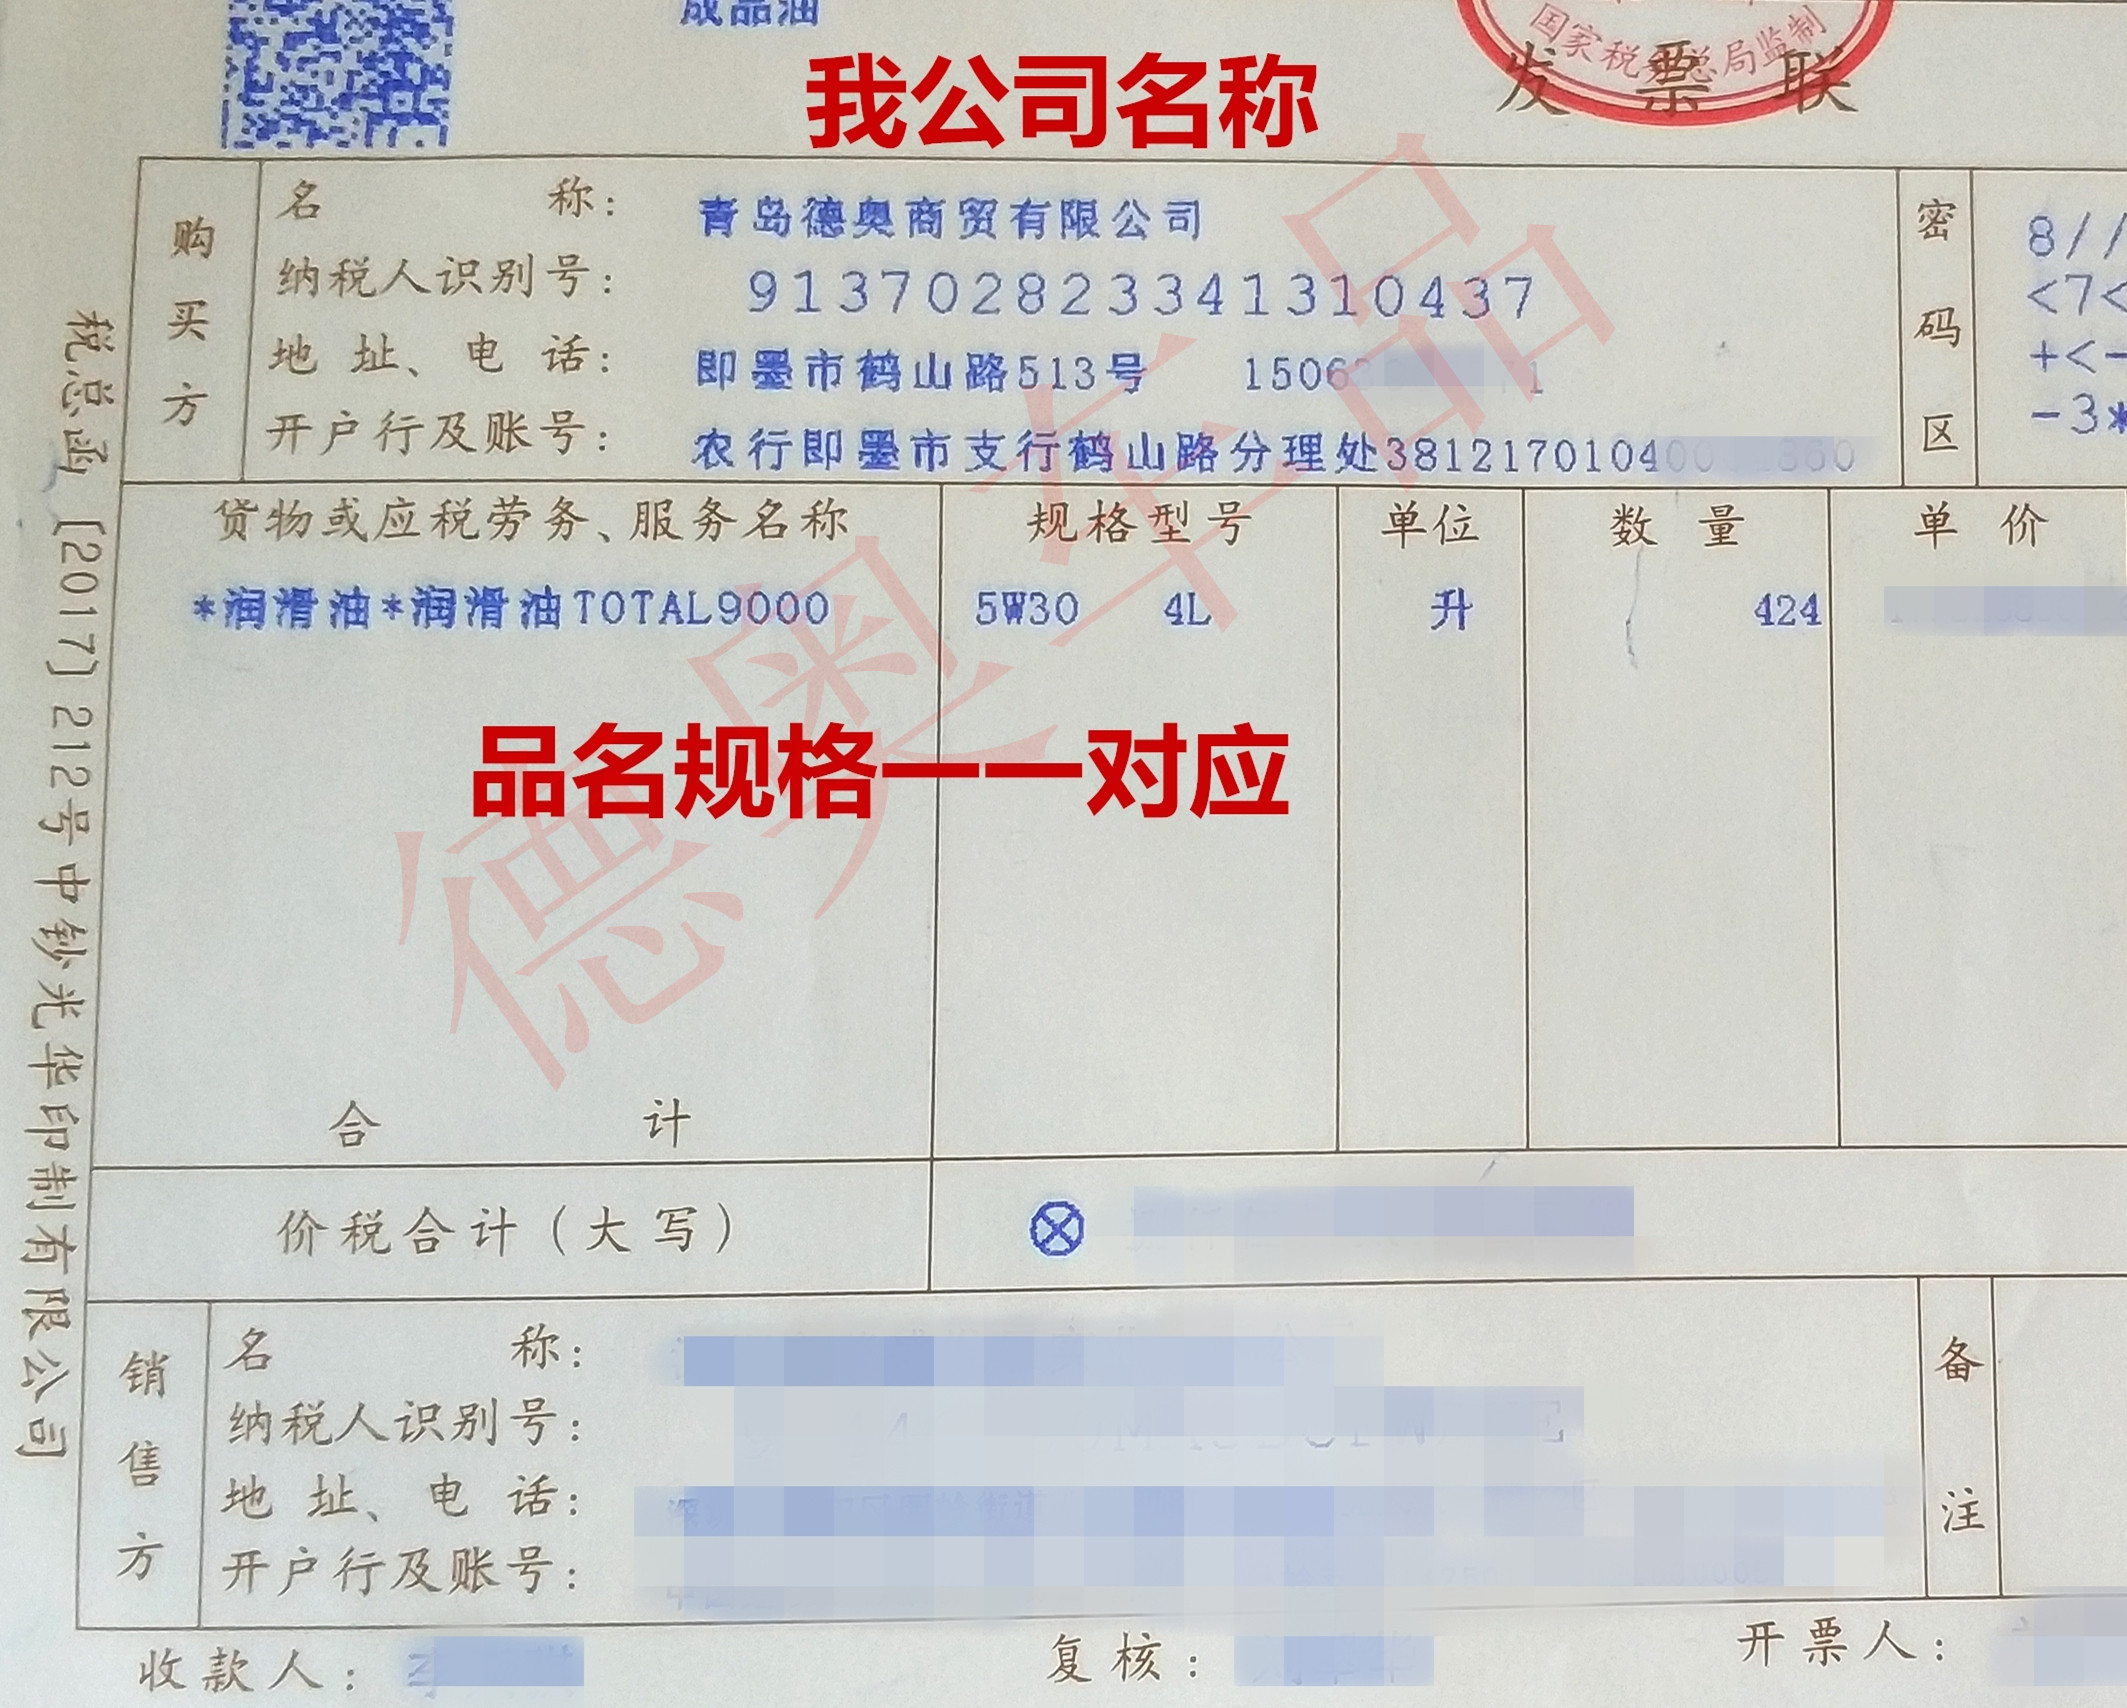 成品油
国家税务总局监制
发票联
我公司名称
购买方
名称：青岛德奥商贸有限公司
纳税人识别号：913702823341310437
地址、电话：即墨市鹤山路513号 1506
开户行及账号：农行即墨市支行鹤山路分理处3812170104
密码区
8//
<7<
+<-
-3*
货物或应税劳务、服务名称 规格型号 单位 数量 单价
*润滑油*润滑油TOTAL9000 5W30 4L 升 424
品名规格一一对应
德奥车品
合计
价税合计（大写）
销售方
名称：
纳税人识别号：
地址、电话：
开户行及账号：
备注
收款人：
复核：
开票人：
税总函〔2017〕212号中钞光华印制有限公司